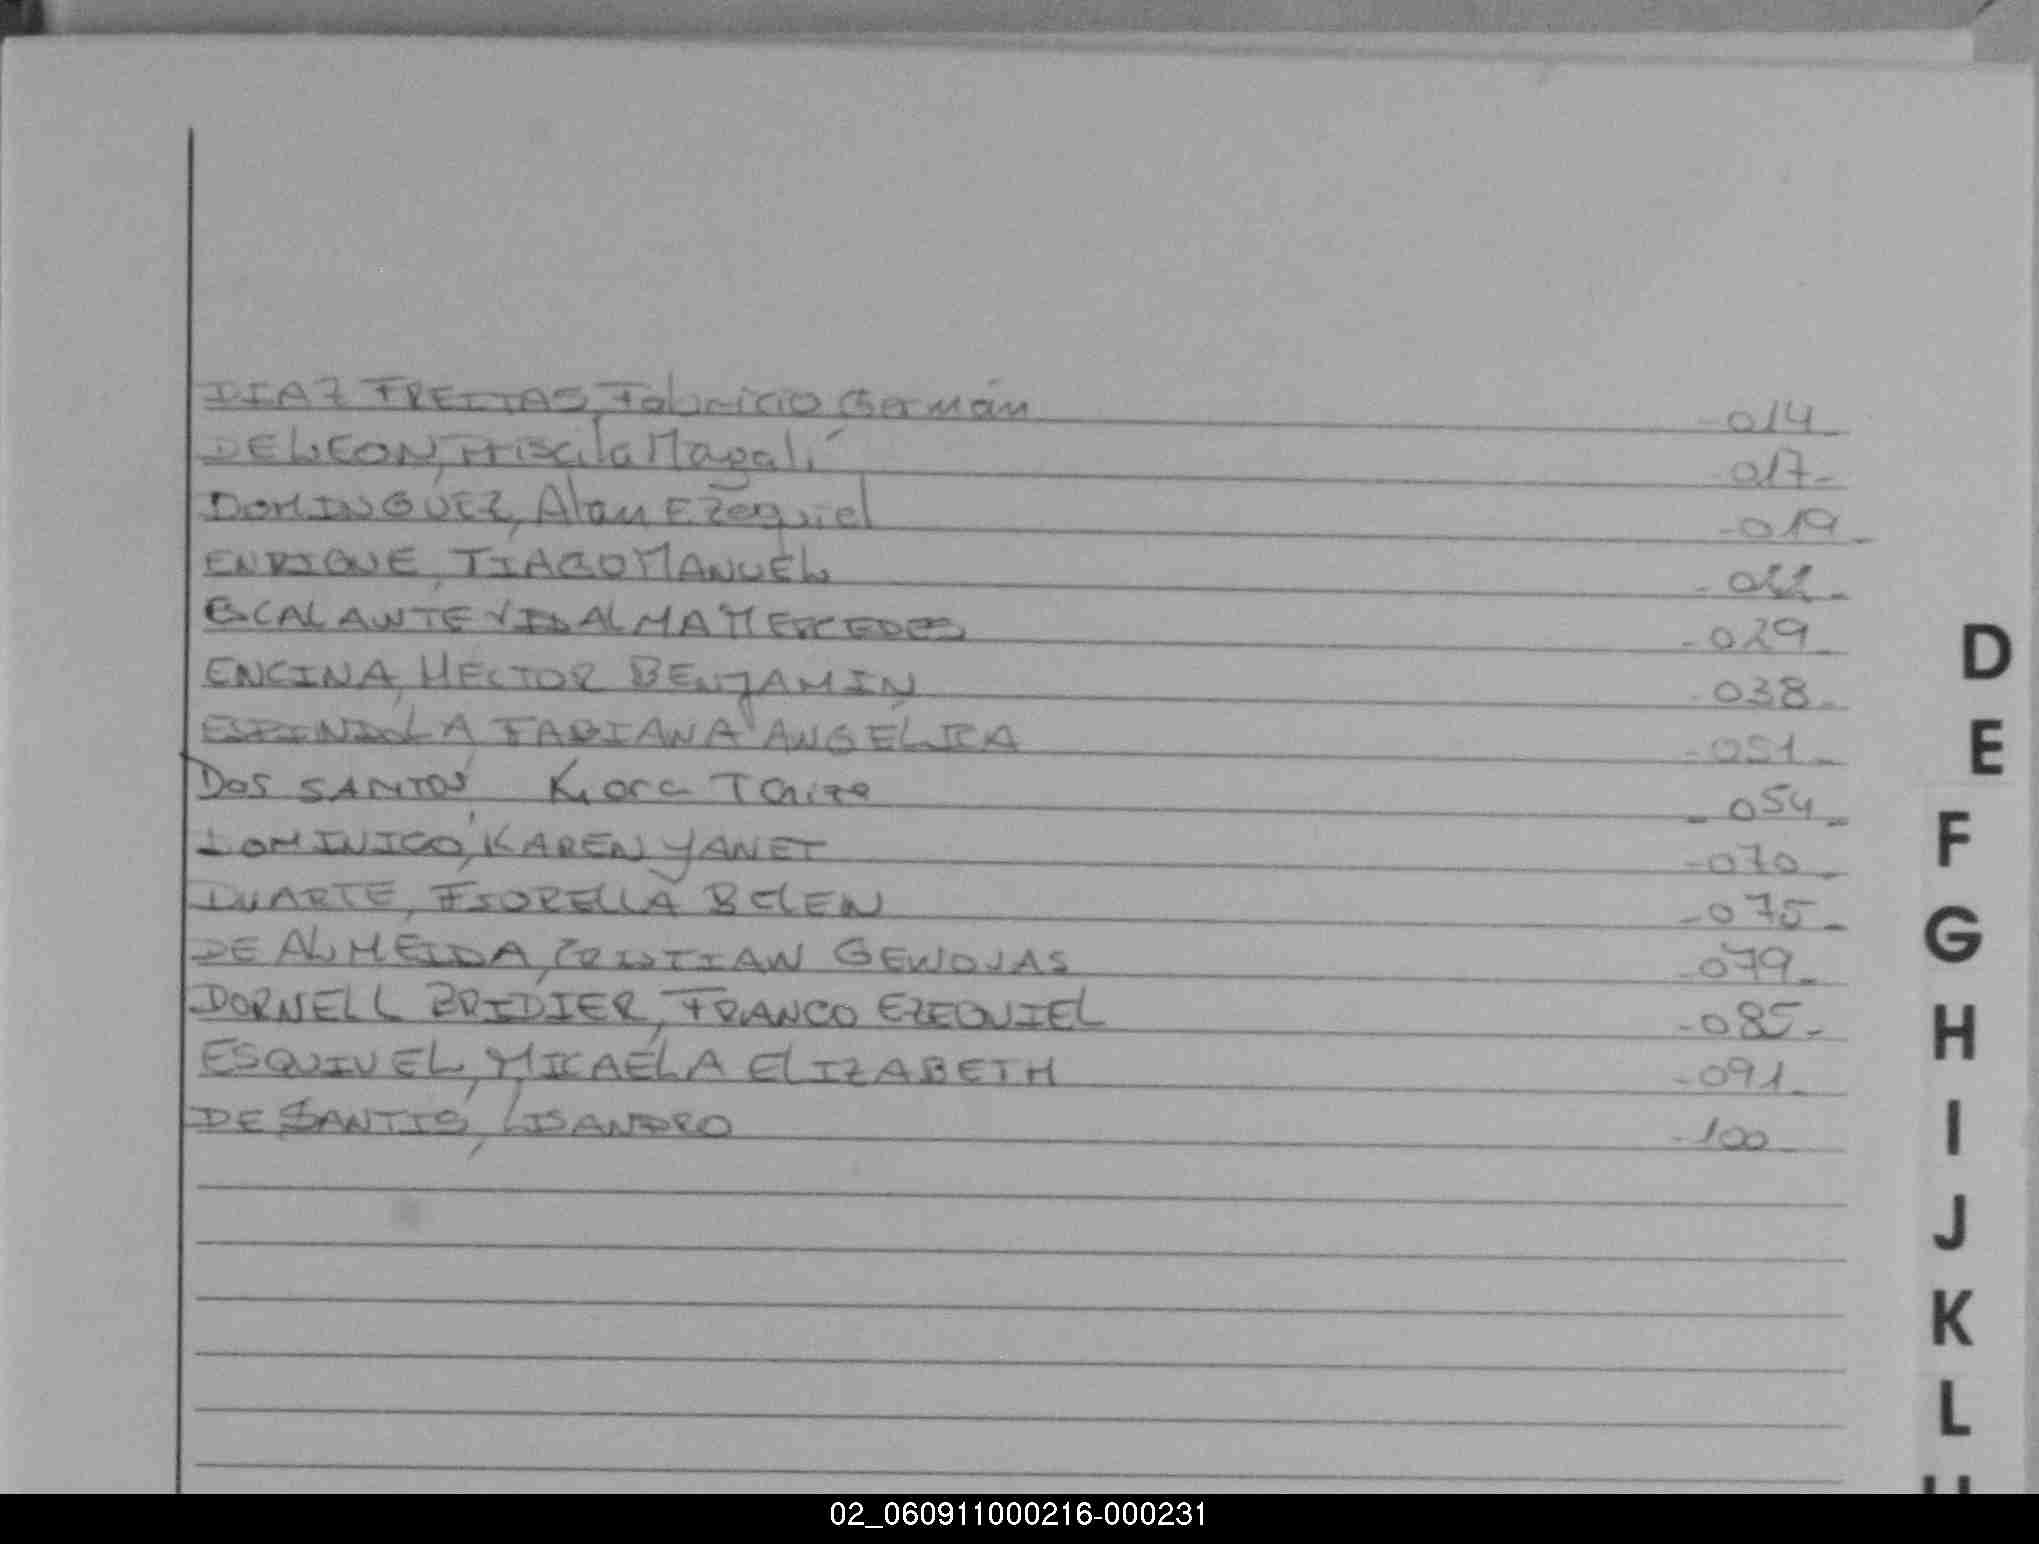 DIAZ FREITAS, Fabricio Germán -014-
DE LEON, Priscila Magalí -017-
DOMINGUEZ, Alan Ezequiel -019-
ENRIQUE, TIAGO MANUEL -022-
ESCALANTE VIDAL MA MERCEDES -029-
ENCINA, HECTOR BENJAMIN -038-
ESPINDOLA FABIANA ANGELICA -051-
D
E
DOS SANTOS, Kiara -054-
F
DOMINICO, KAREN YANET -070-
DUARTE, FIORELLA BELEN -075-
G
DE ALMEIDA, CRISTIAN -079-
DORNELL BRIDIER, FRANCO EZEQUIEL -085-
H
ESQUIVEL, MICAELA ELIZABETH -091-
DE SANTIS, LISANDRO -100-
I
J
K
L
02_060911000216-000231